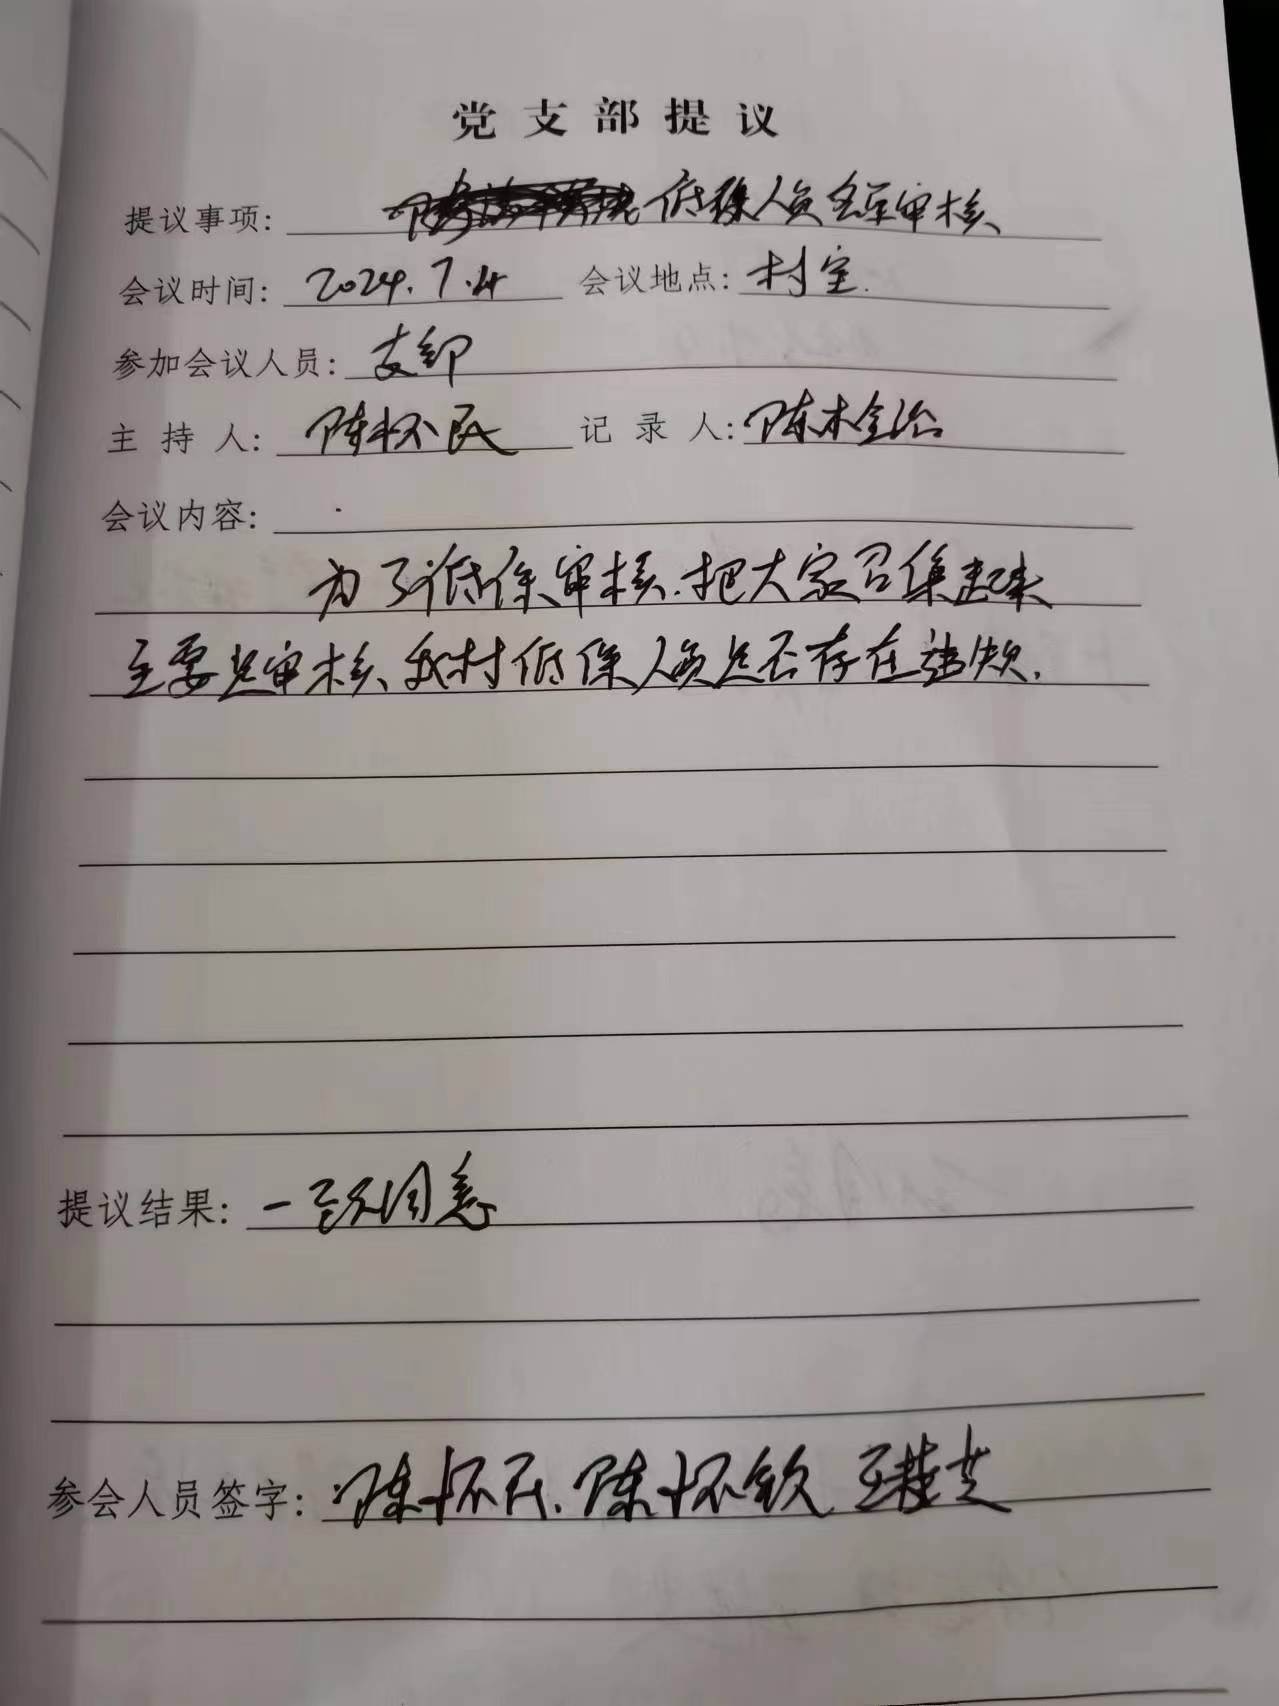 党支部提议
提议事项: 低保人员年审核
会议时间: 2024.7.4 会议地点: 村室.
参加会议人员: 支部
主持人: 陈怀民 记录人: 陈木全治
会议内容:
为了低保审核.把大家召集起来
主要是审核我村低保人员是否存在违规.
提议结果: 一致同意
参会人员签字: 陈怀民.陈怀钦